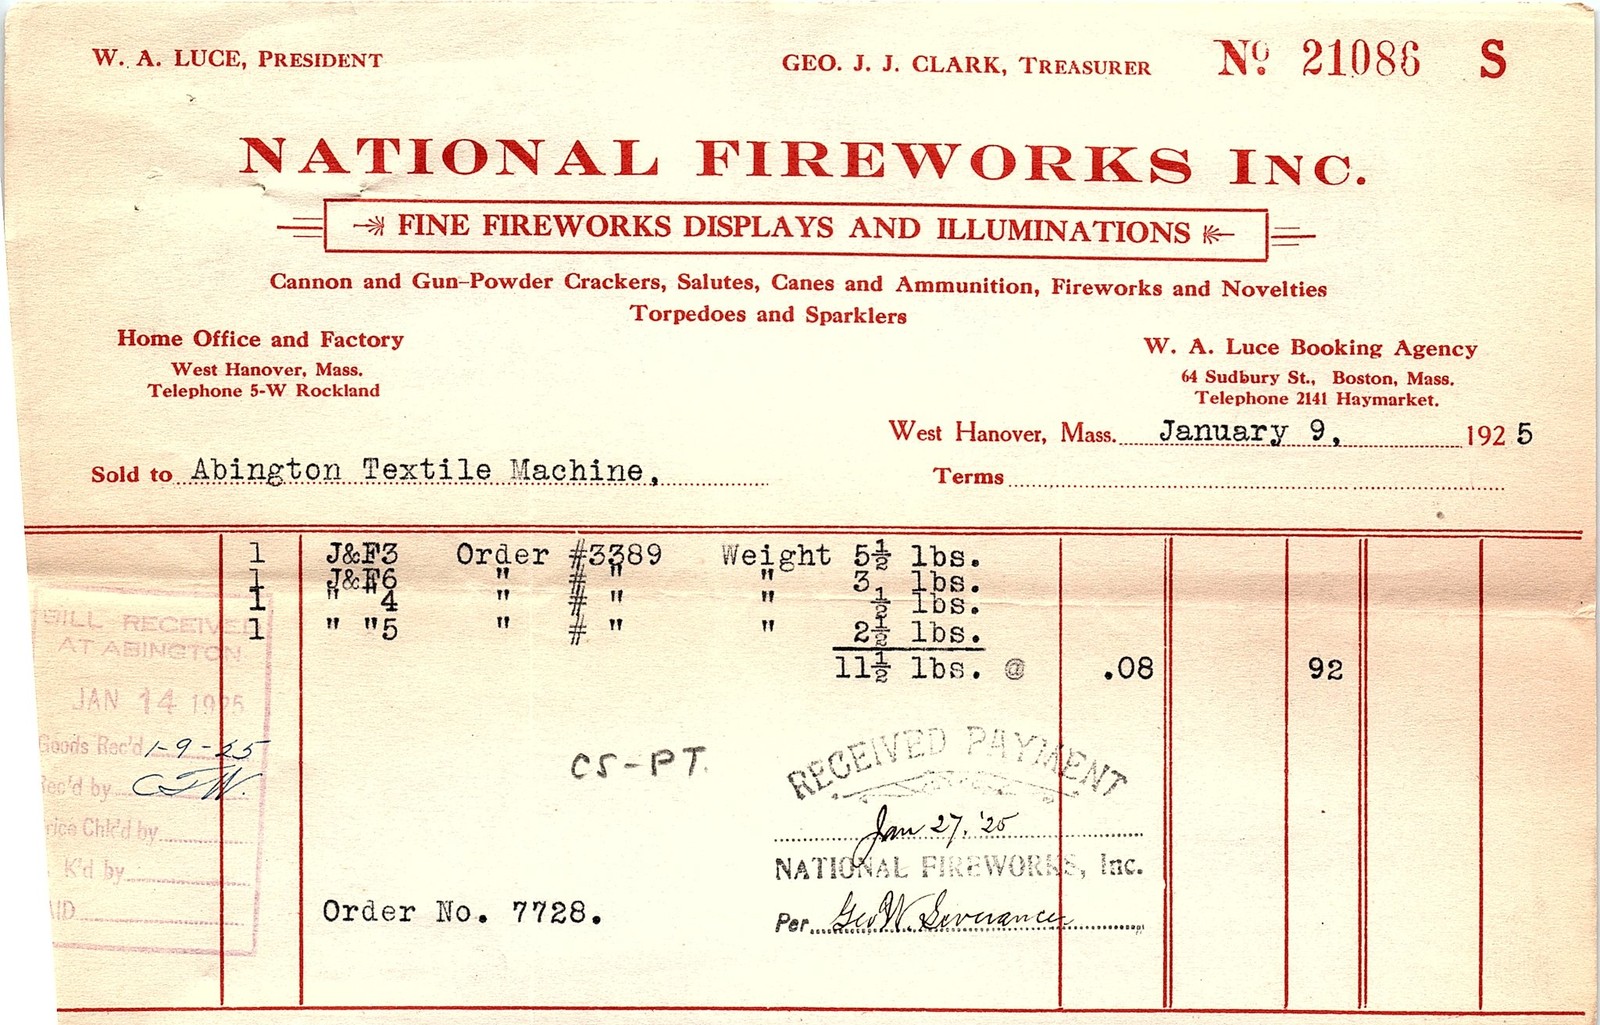 W. A. LUCE, PRESIDENT
GEO. J. J. CLARK, TREASURER
No. 21086 S
NATIONAL FIREWORKS INC.
FINE FIREWORKS DISPLAYS AND ILLUMINATIONS
Cannon and Gun-Powder Crackers, Salutes, Canes and Ammunition, Fireworks and Novelties
Torpedoes and Sparklers
Home Office and Factory
West Hanover, Mass.
Telephone 5-W Rockland
W. A. Luce Booking Agency
64 Sudbury St., Boston, Mass.
Telephone 2141 Haymarket.
West Hanover, Mass. January 9, 1925
Sold to Abington Textile Machine,
Terms
1 J&F3 Order #3389 Weight 5½ lbs.
1 J&F6 " # " " 3 lbs.
1 " "4 " # " " ½ lbs.
1 " "5 " # " " 2½ lbs.
11½ lbs. @ .08 92
BILL RECEIVED
AT ABINGTON
JAN 14 1925
Goods Rec'd 1-9-25
Rec'd by CFW.
rice Chk'd by
K'd by
ID
CS-PT.
RECEIVED PAYMENT
Jan 27, '25
NATIONAL FIREWORKS, Inc.
Per Geo W. Severance
Order No. 7728.